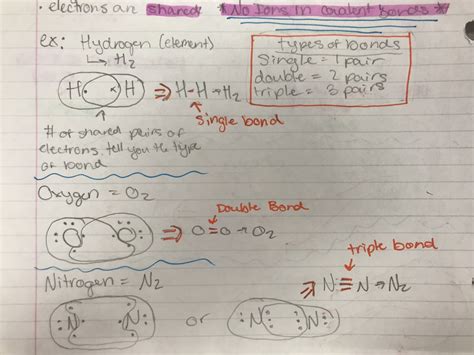 • electrons are shared *No Ions in covalent bonds*
ex: Hydrogen (element)
↳ H₂
types of bonds
single = 1 pair
double = 2 pairs
triple = 3 pairs
H · × H ⇒ H-H → H₂
single bond
# of shared pairs of
electrons, tell you the type
of bond
Oxygen = O₂
Double Bond
O O ⇒ O=O → O₂
triple bond
Nitrogen = N₂
⇒ N≡N → N₂
N N or N N